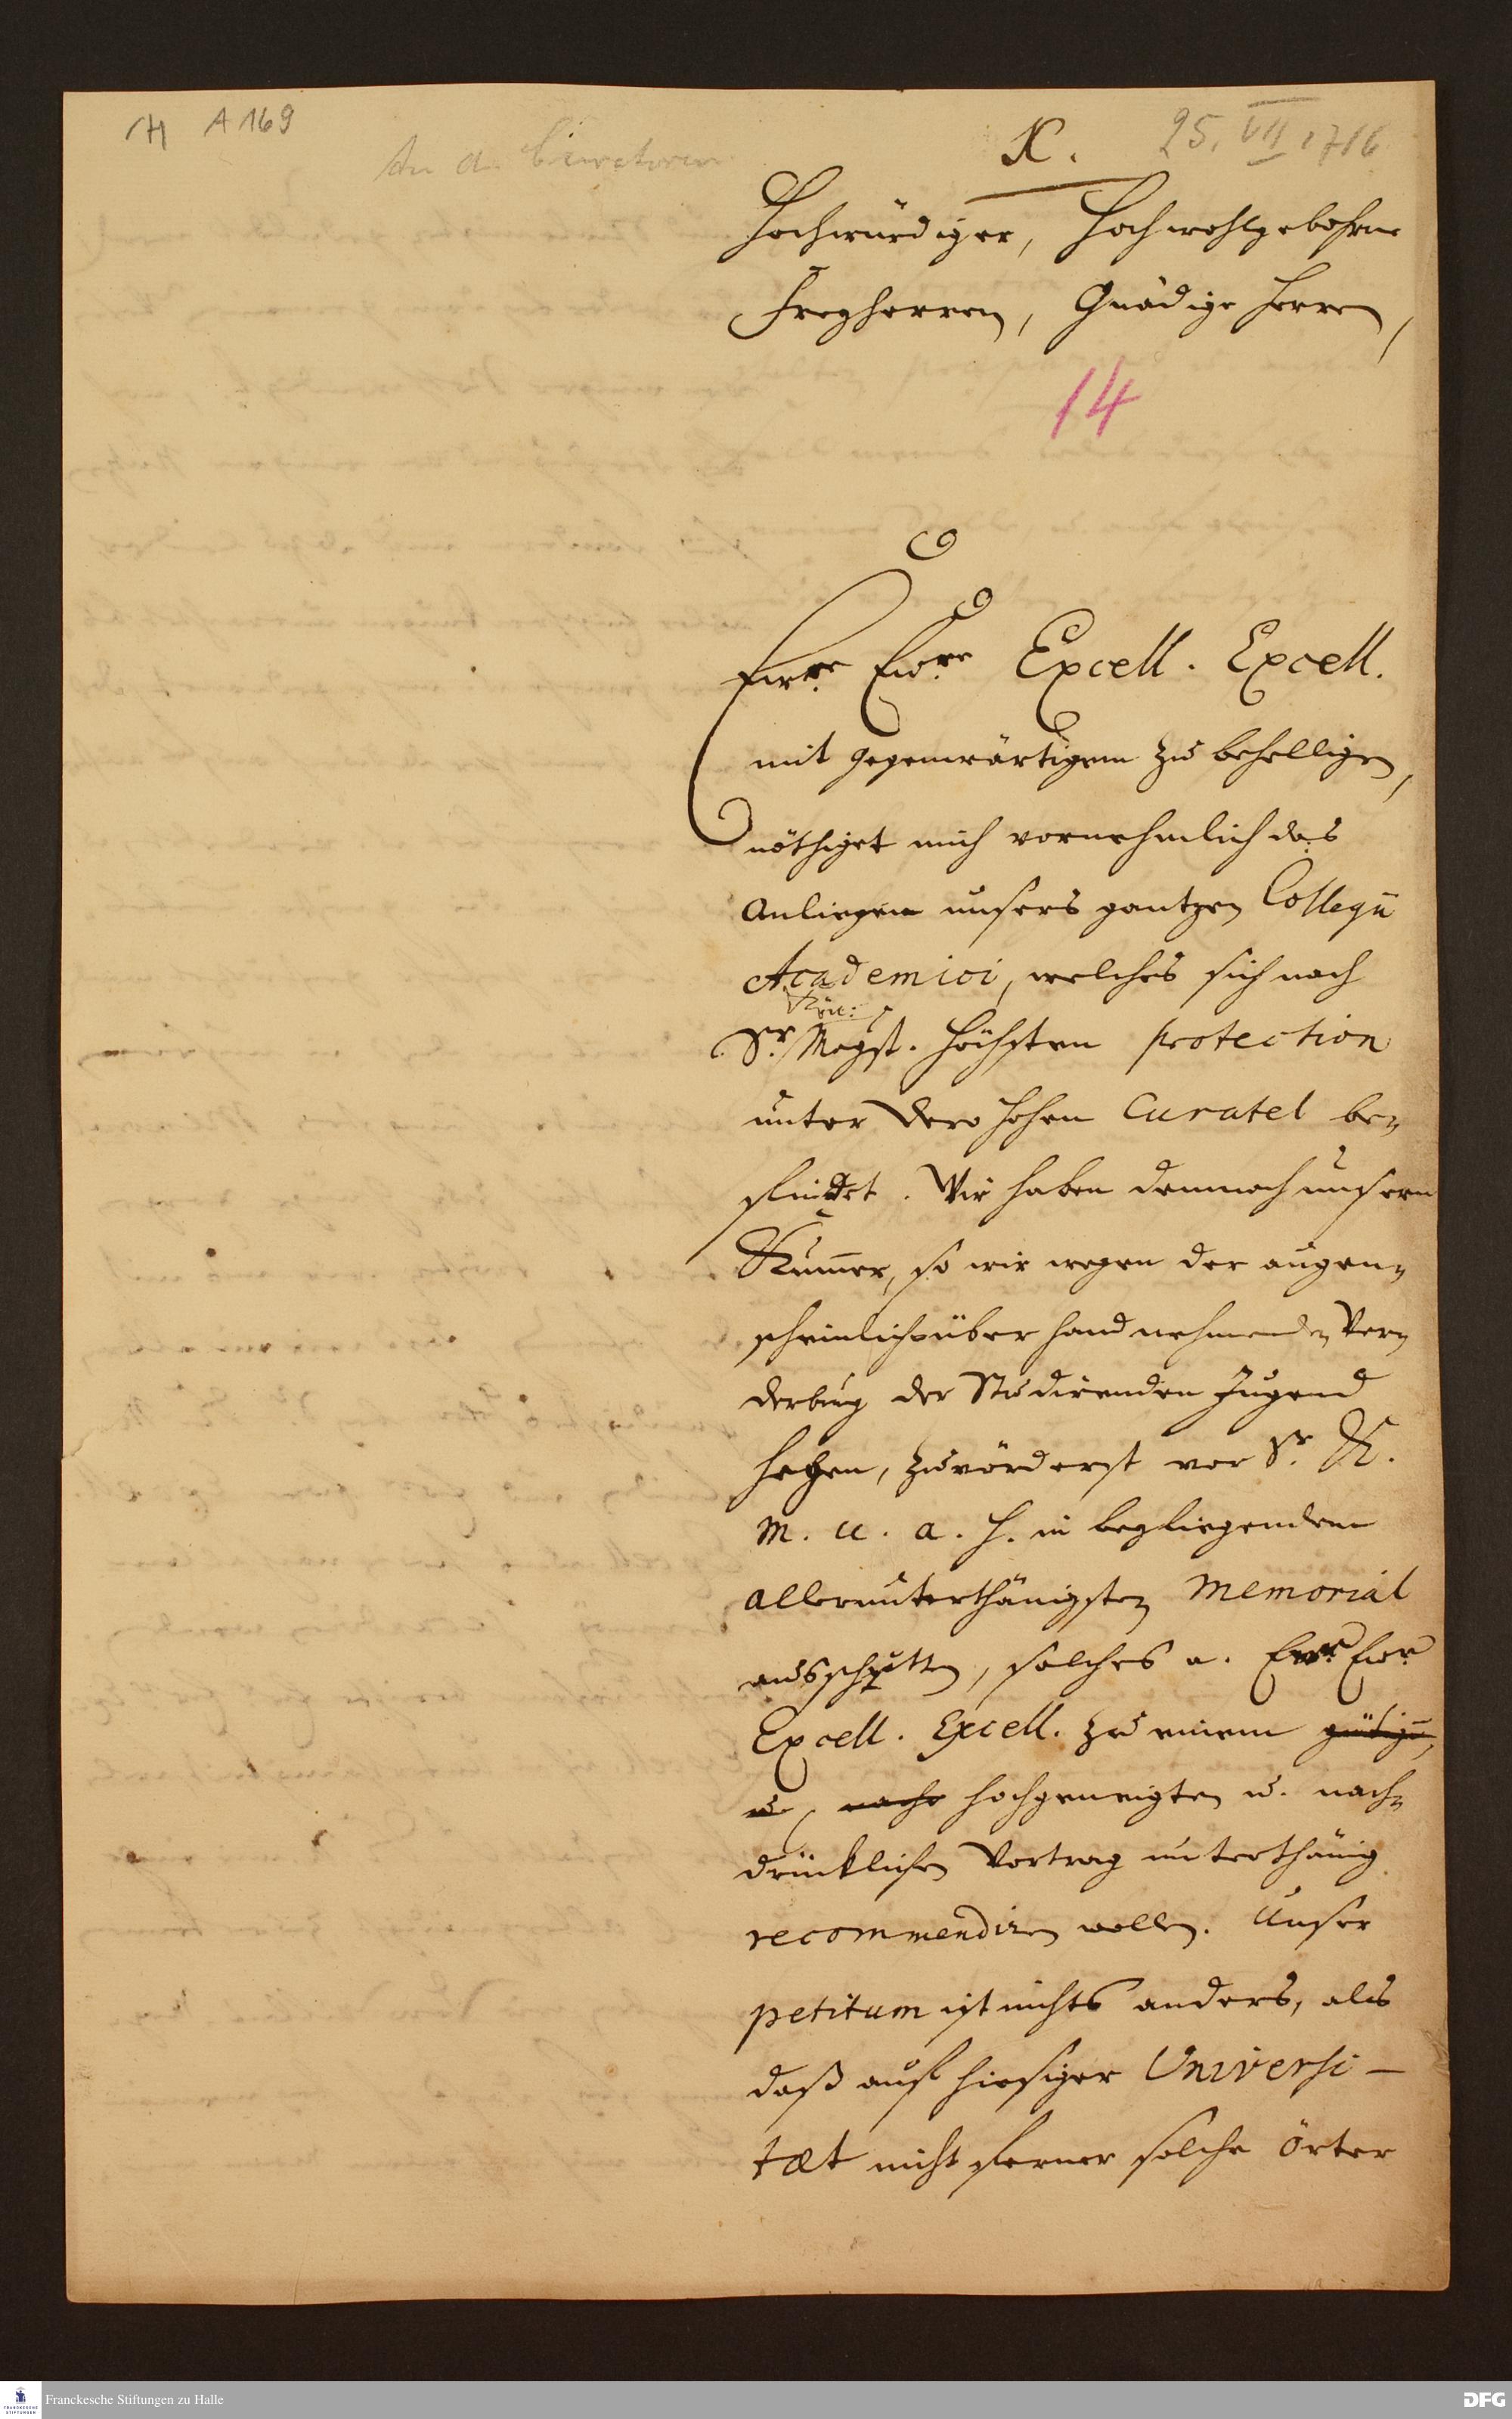 A 169
An d. Curatoren
X. 25. VII 1716
Hochwürdiger, Hochwohlgebohrne
Freyherren, Gnädige Herren,
14
Ewre Ewre Excell. Excell.
mit gegenwärtigem zu behelligen,
nöthiget mich vornehmlich das
Anliegen unsers gantzen Collegii
Academici, welches sich nach
Sr. Kön: Majst. höchsten protection
unter Dero hohen Curatel be-
findet. Wir haben demnach unsern
Kummer, so wir wegen der augen-
scheinlich überhand nehmenden Ver-
derbung der Studirenden Jugend
hegen, zuvörderst vor Sr. K.
M. u. a. H. in beyliegendem
allerunterthänigsten Memorial
ausschütten, solches a. Ewre Ewre
Excell. Excell. zu einem gütigen,
u. nach hochgeneigten u. nach-
drücklichen Vortrag unterthänig
recommendiren wollen. Unser
petitum ist nichts anders, als
daß auf hiesiger Universi-
tæt nicht ferner solche örter
Franckesche Stiftungen zu Halle
DFG